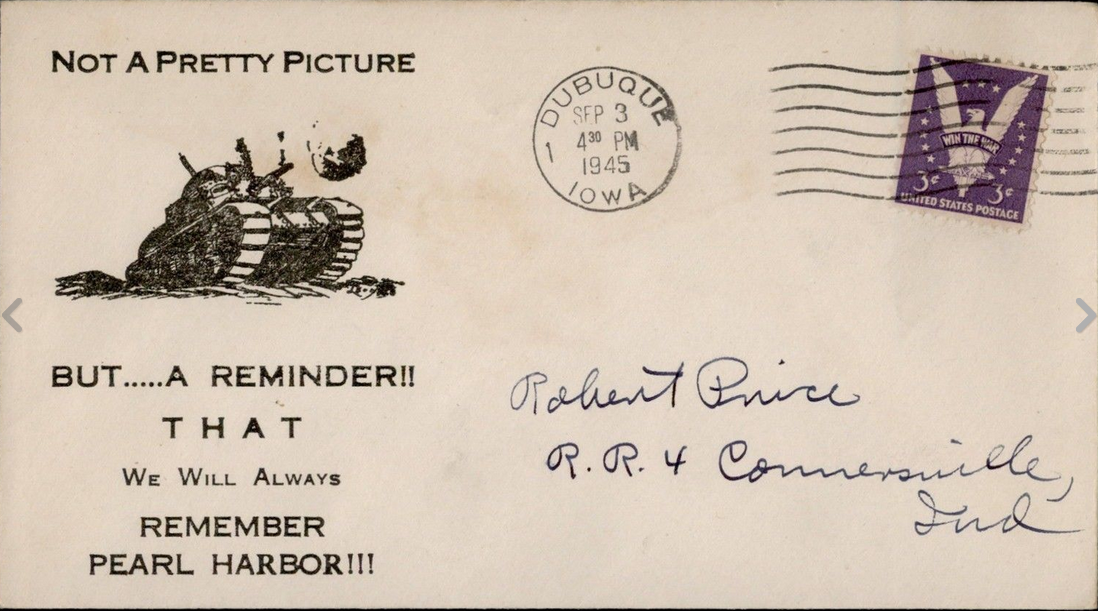 NOT A PRETTY PICTURE
DUBUQUE
SEP 3
4 30 PM
1945
1
IOWA
WIN THE WAR
3¢ 3¢
UNITED STATES POSTAGE
BUT.....A REMINDER!!
THAT
WE WILL ALWAYS
REMEMBER
PEARL HARBOR!!!
Robert Price
R. R. 4 Connersville,
Ind